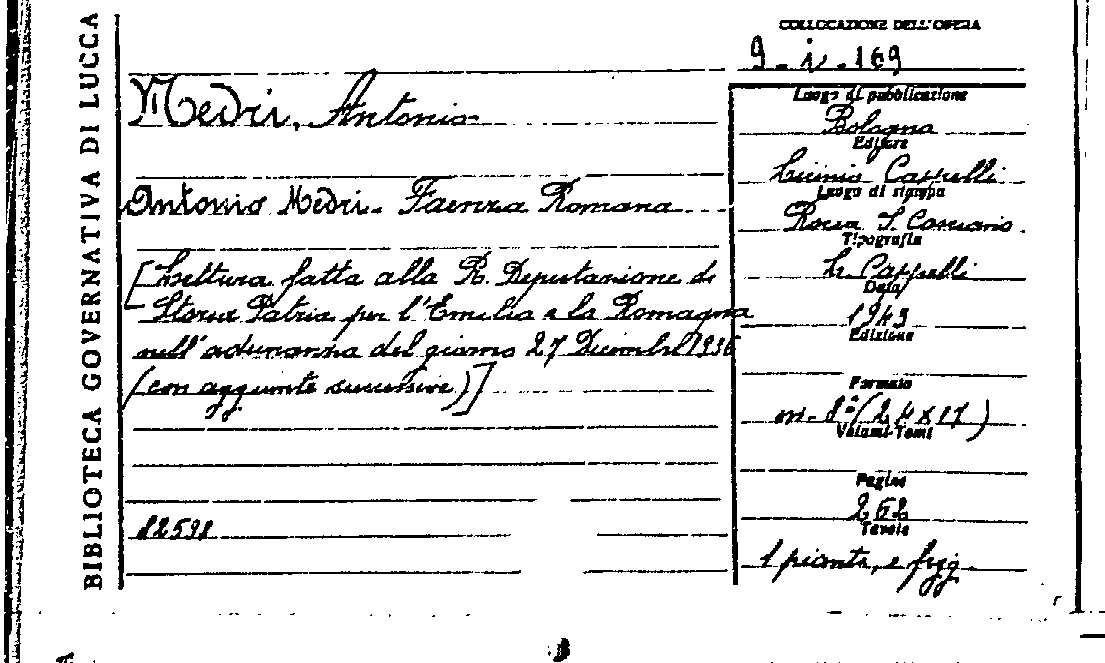 BIBLIOTECA GOVERNATIVA DI LUCCA
COLLOCAZIONE DELL'OPERA
9 - i - 169
Medri, Antonio
Antonio Medri - Faenza Romana
[Lettura fatta alla R. Deputazione di
Storia Patria per l'Emilia e la Romagna
nell'adunanza del giorno 27 Dicembre 1936
(con aggiunte successive)]
82598
Luogo di pubblicazione
Bologna
Editore
Licinio Cappelli
Luogo di stampa
Rocca S. Casciano.
Tipografia
L. Cappelli
Data
1943
Edizione
Formato
in-8° (24x17)
Volumi-Tomi
Pagine
262
Tavole
1 pianta, e figg.